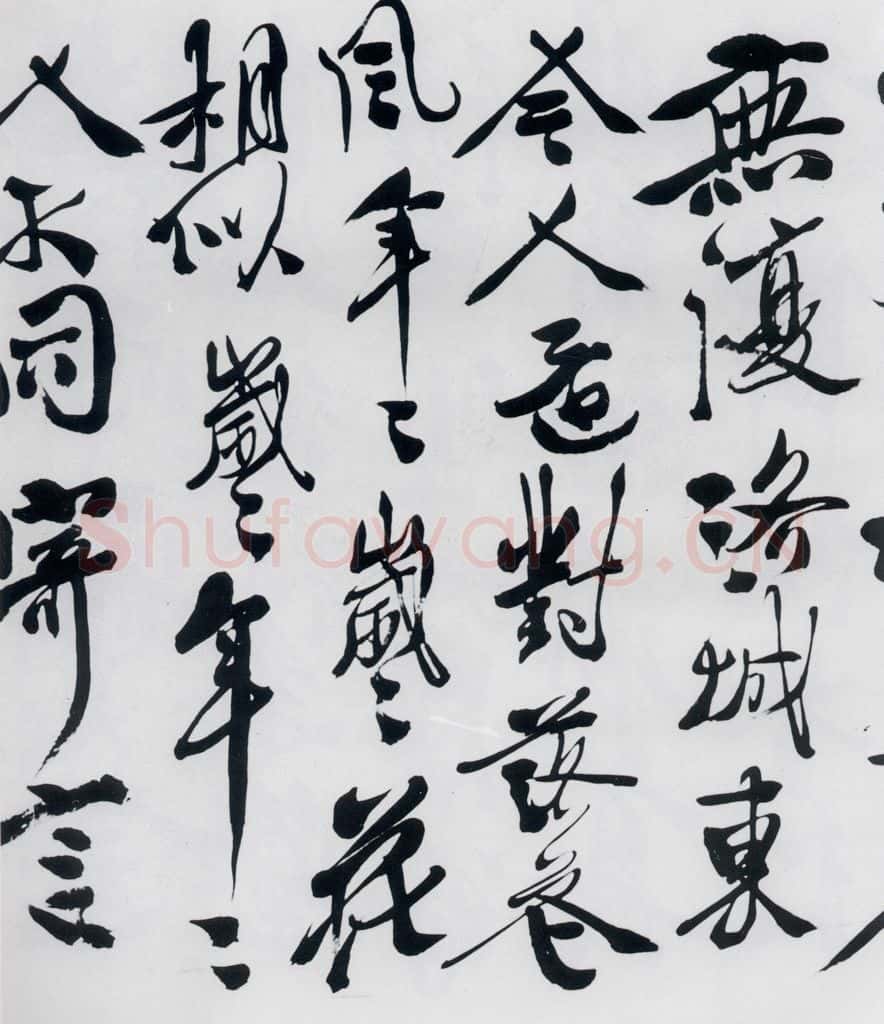 無復洛城東
今人還對落花
風年々歲々花
相似歲々年々
人不同寄言
Shufawang.CN